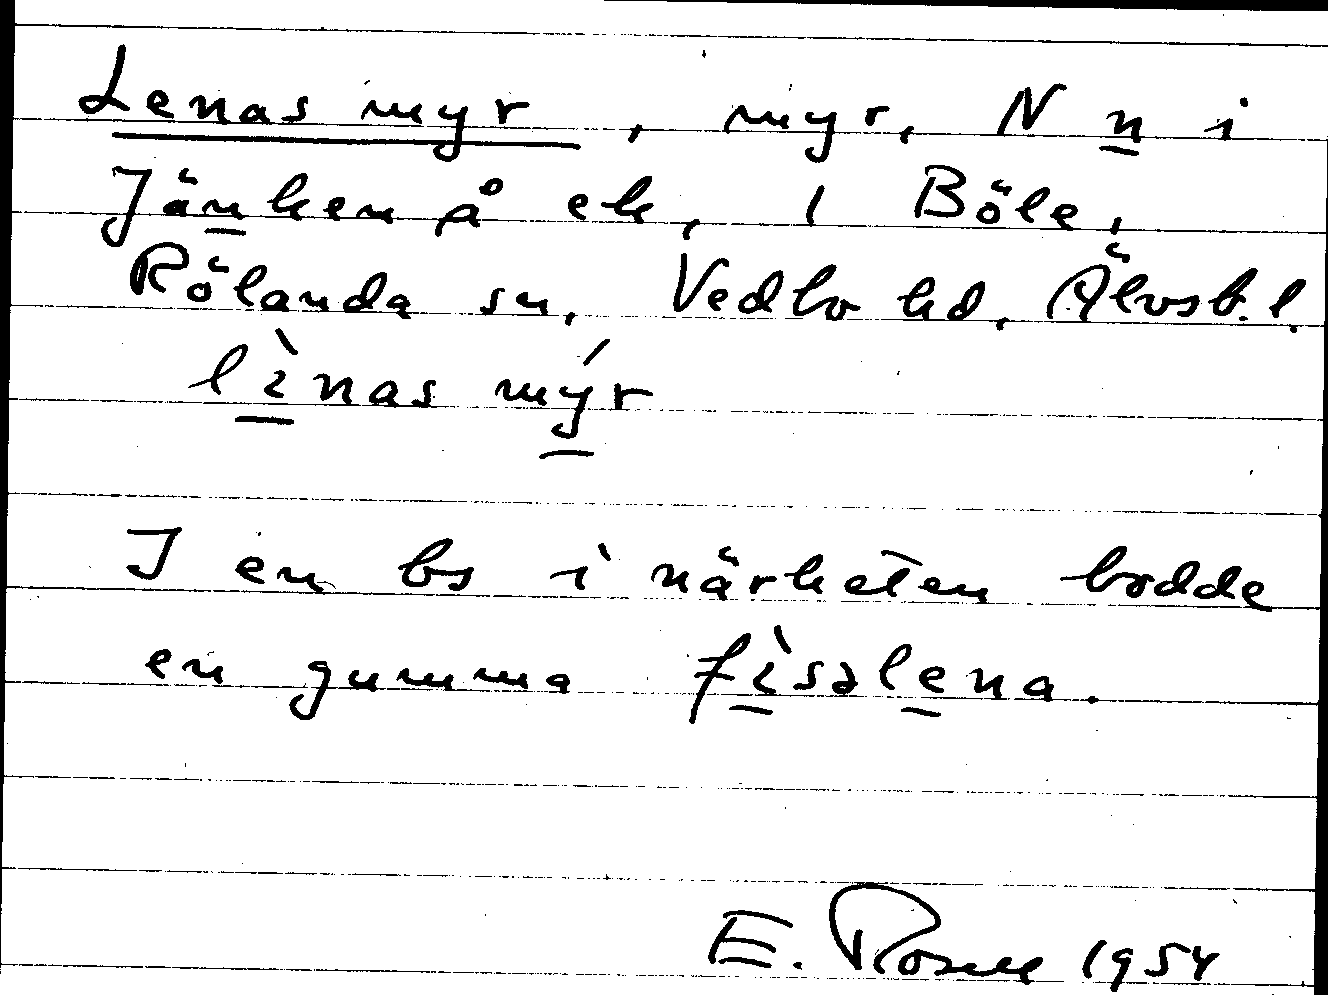 Lenas myr, myr, N n i
Jänken å ek, 1 Böle,
Rölanda sn, Vedbo hd, Älvsb. l.
lènas mýr
I en bs i närheten bodde
en gumma fìsəlena.
E. Rosell 1954